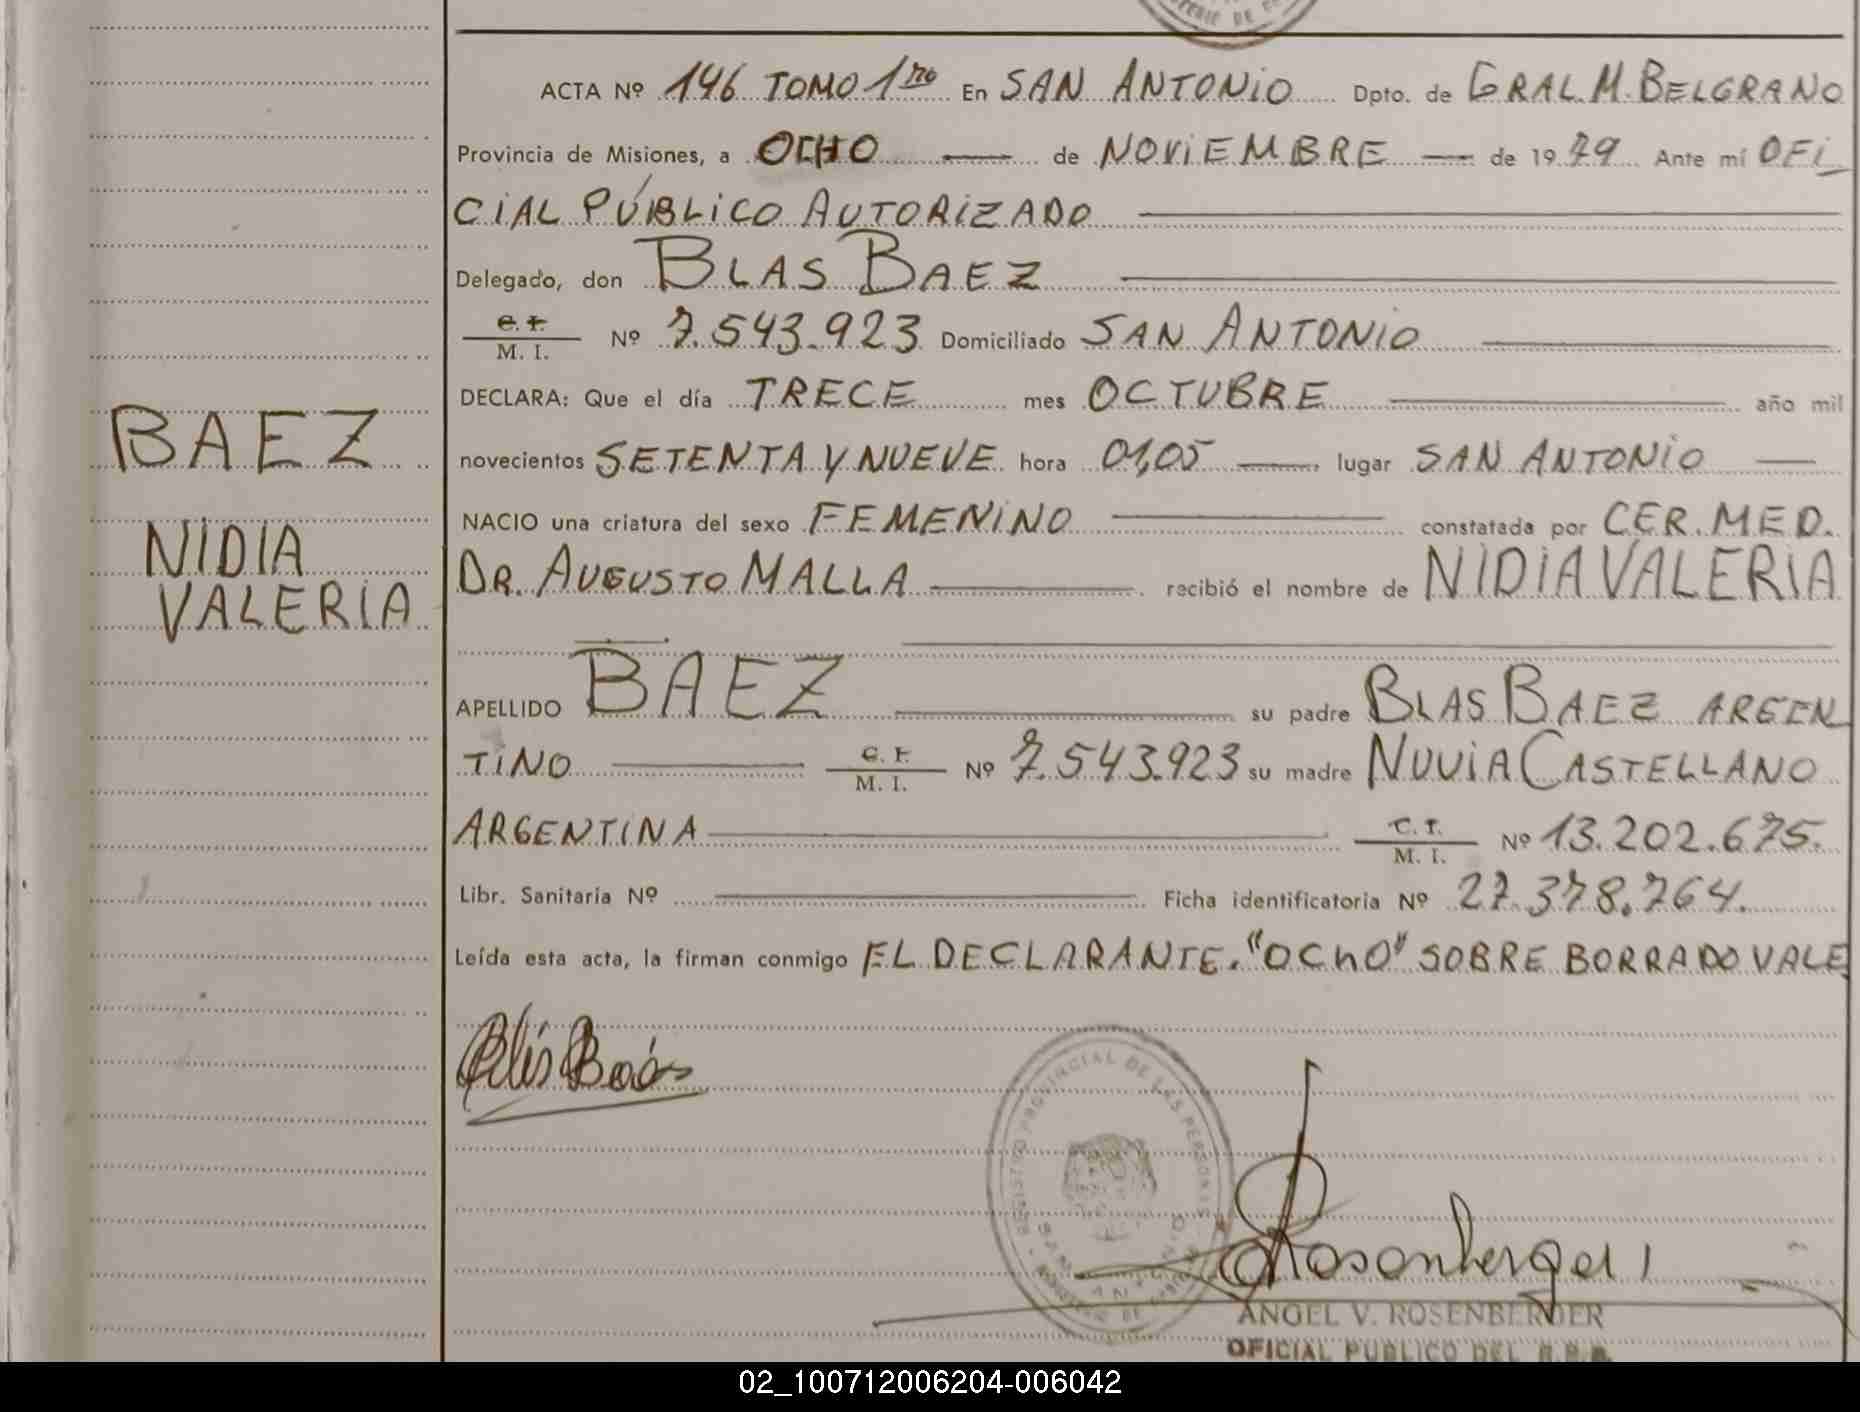 ACTA Nº 146 TOMO 1ro En SAN ANTONIO Dpto. de GRAL. M. BELGRANO
Provincia de Misiones, a OCHO de NOVIEMBRE de 1979 Ante mí OFI
CIAL PÚBLICO AUTORIZADO
Delegado, don BLAS BAEZ
C. I.
M. I. Nº 7.543.923 Domiciliado SAN ANTONIO
DECLARA: Que el día TRECE mes OCTUBRE año mil
BAEZ
novecientos SETENTA Y NUEVE hora 01,05 lugar SAN ANTONIO
NACIO una criatura del sexo FEMENINO constatada por CER. MED.
NIDIA
VALERIA
DR. AUGUSTO MALLA recibió el nombre de NIDIA VALERIA
APELLIDO BAEZ su padre BLAS BAEZ ARGEN
TINO C. I.
M. I. Nº 7.543.923 su madre NUVIA CASTELLANO
ARGENTINA C. I.
M. I. Nº 13.202.675.
Libr. Sanitaria Nº Ficha identificatoria Nº 27.378.764.
Leída esta acta, la firman conmigo EL DECLARANTE. "OChO" SOBRE BORRADO VALE
REGISTRO PROVINCIAL DE LAS PERSONAS
ANGEL V. ROSENBERGER
OFICIAL PUBLICO DEL R.P.P.
02_100712006204-006042